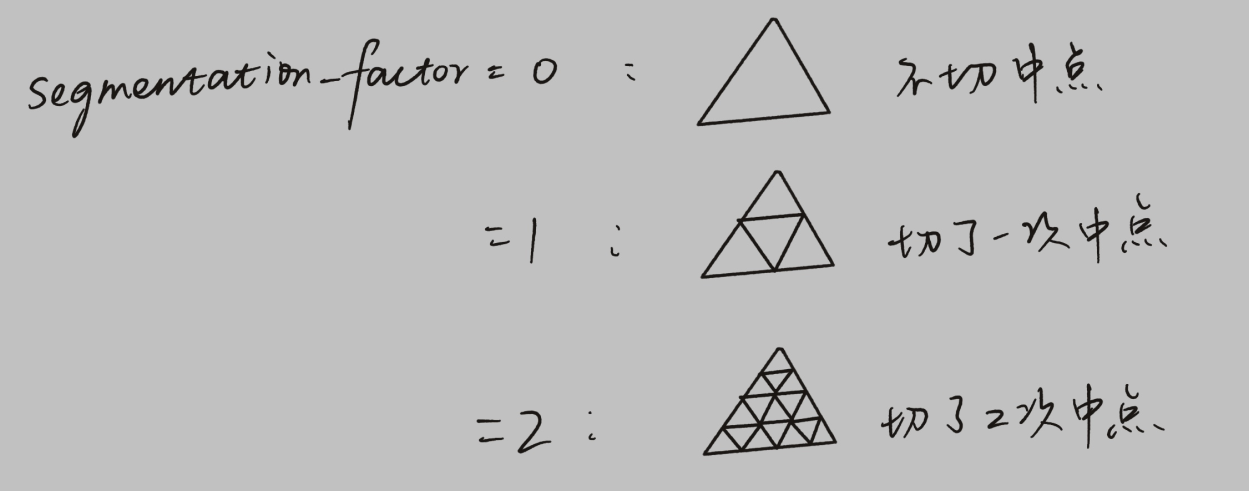 segmentation_factor = 0 : 不切中点
=1 : 切了一次中点
=2 : 切了2次中点